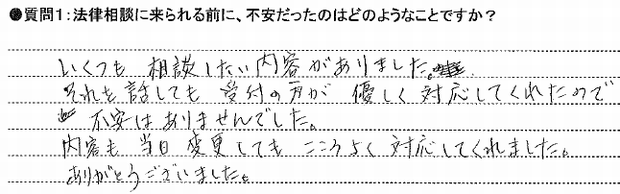 ●質問1:法律相談に来られる前に、不安だったのはどのようなことですか?
いくつも 相談したい内容がありました。
それを話しても 受付の方が 優しく 対応してくれたので
不安はありませんでした。
内容も 当日 変更しても こころよく 対応してくれました。
ありがとうございました。